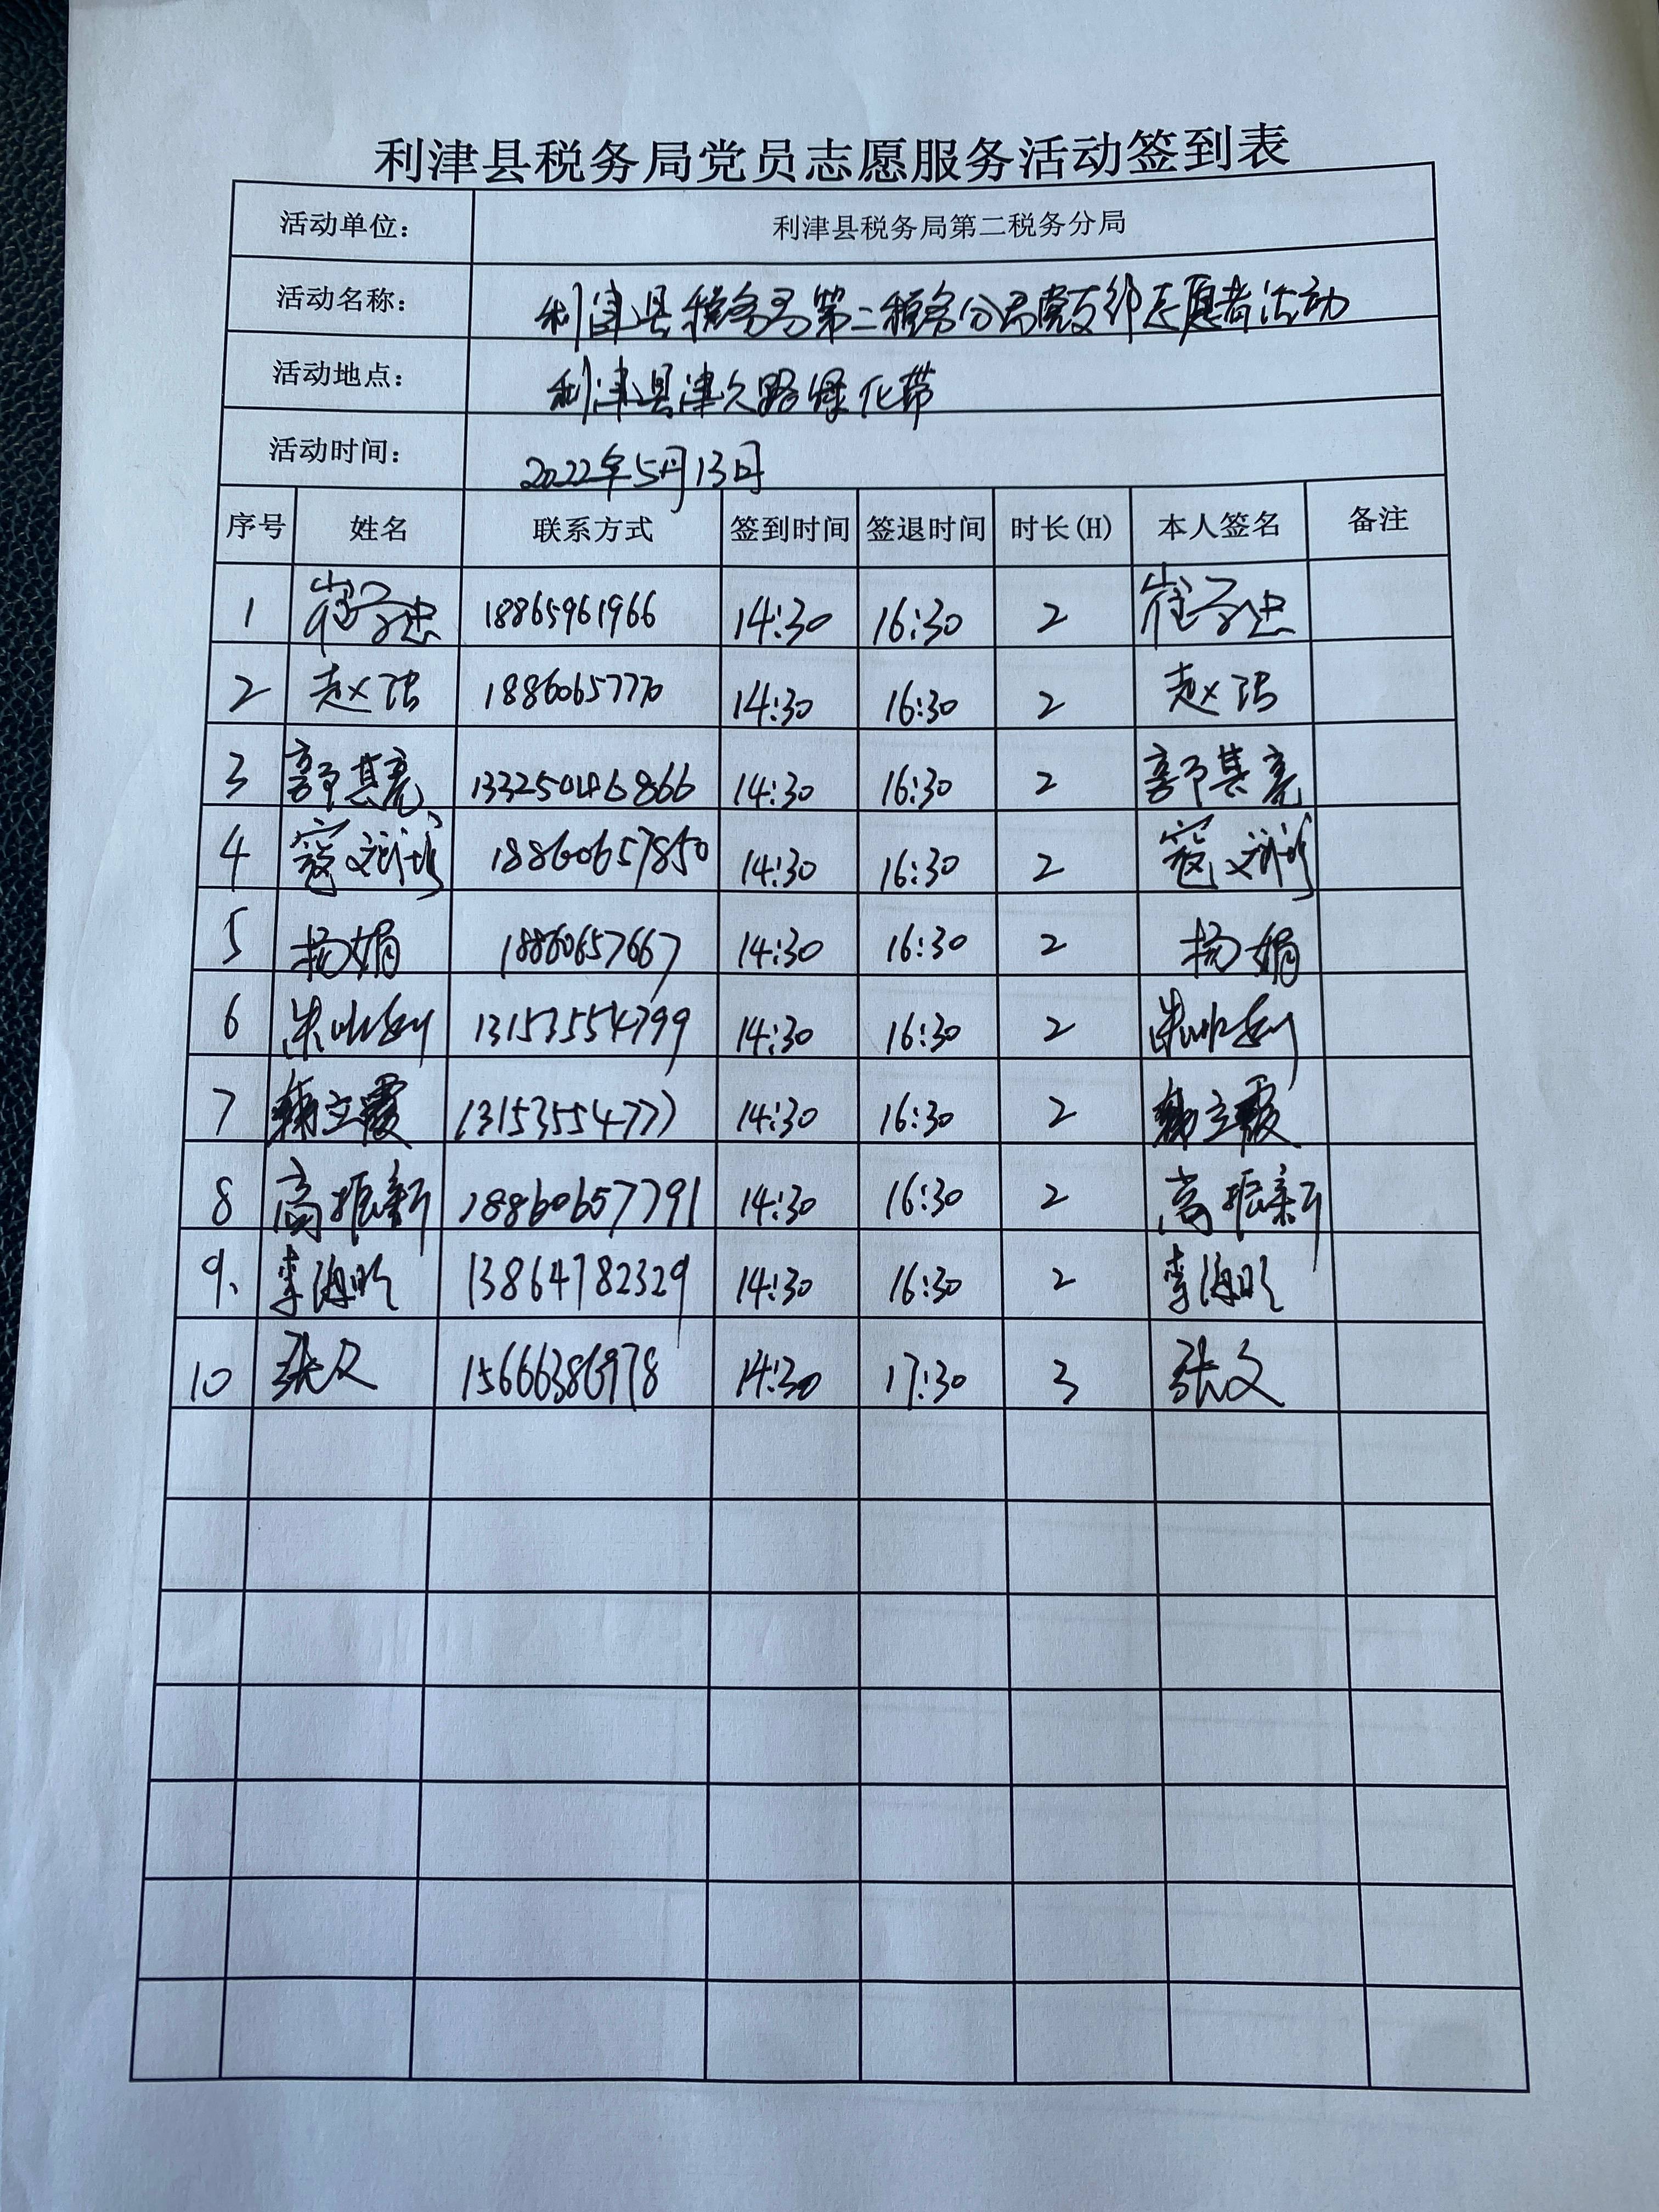 利津县税务局党员志愿服务活动签到表
活动单位： 利津县税务局第二税务分局
活动名称： 利津县税务局第二税务分局党支部志愿者活动
活动地点： 利津县津久路绿化带
活动时间： 2022年5月13日
序号 姓名 联系方式 签到时间 签退时间 时长(H) 本人签名 备注
1 崔子忠 18865961966 14:30 16:30 2 崔子忠
2 赵洁 18860657770 14:30 16:30 2 赵洁
3 郭其亮 14:30 16:30 2 郭其亮
4 寇文 18860657850 14:30 16:30 2 寇文
5 杨娟 18860657667 14:30 16:30 2 杨娟
6 13153554799 14:30 16:30 2
7 韩立霞 13153554777 14:30 16:30 2 韩立霞
8 高振新 18860657791 14:30 16:30 2 高振新
9、 李海明 13864782329 14:30 16:30 2 李海明
10 张文 15666386978 14:30 17:30 3 张文